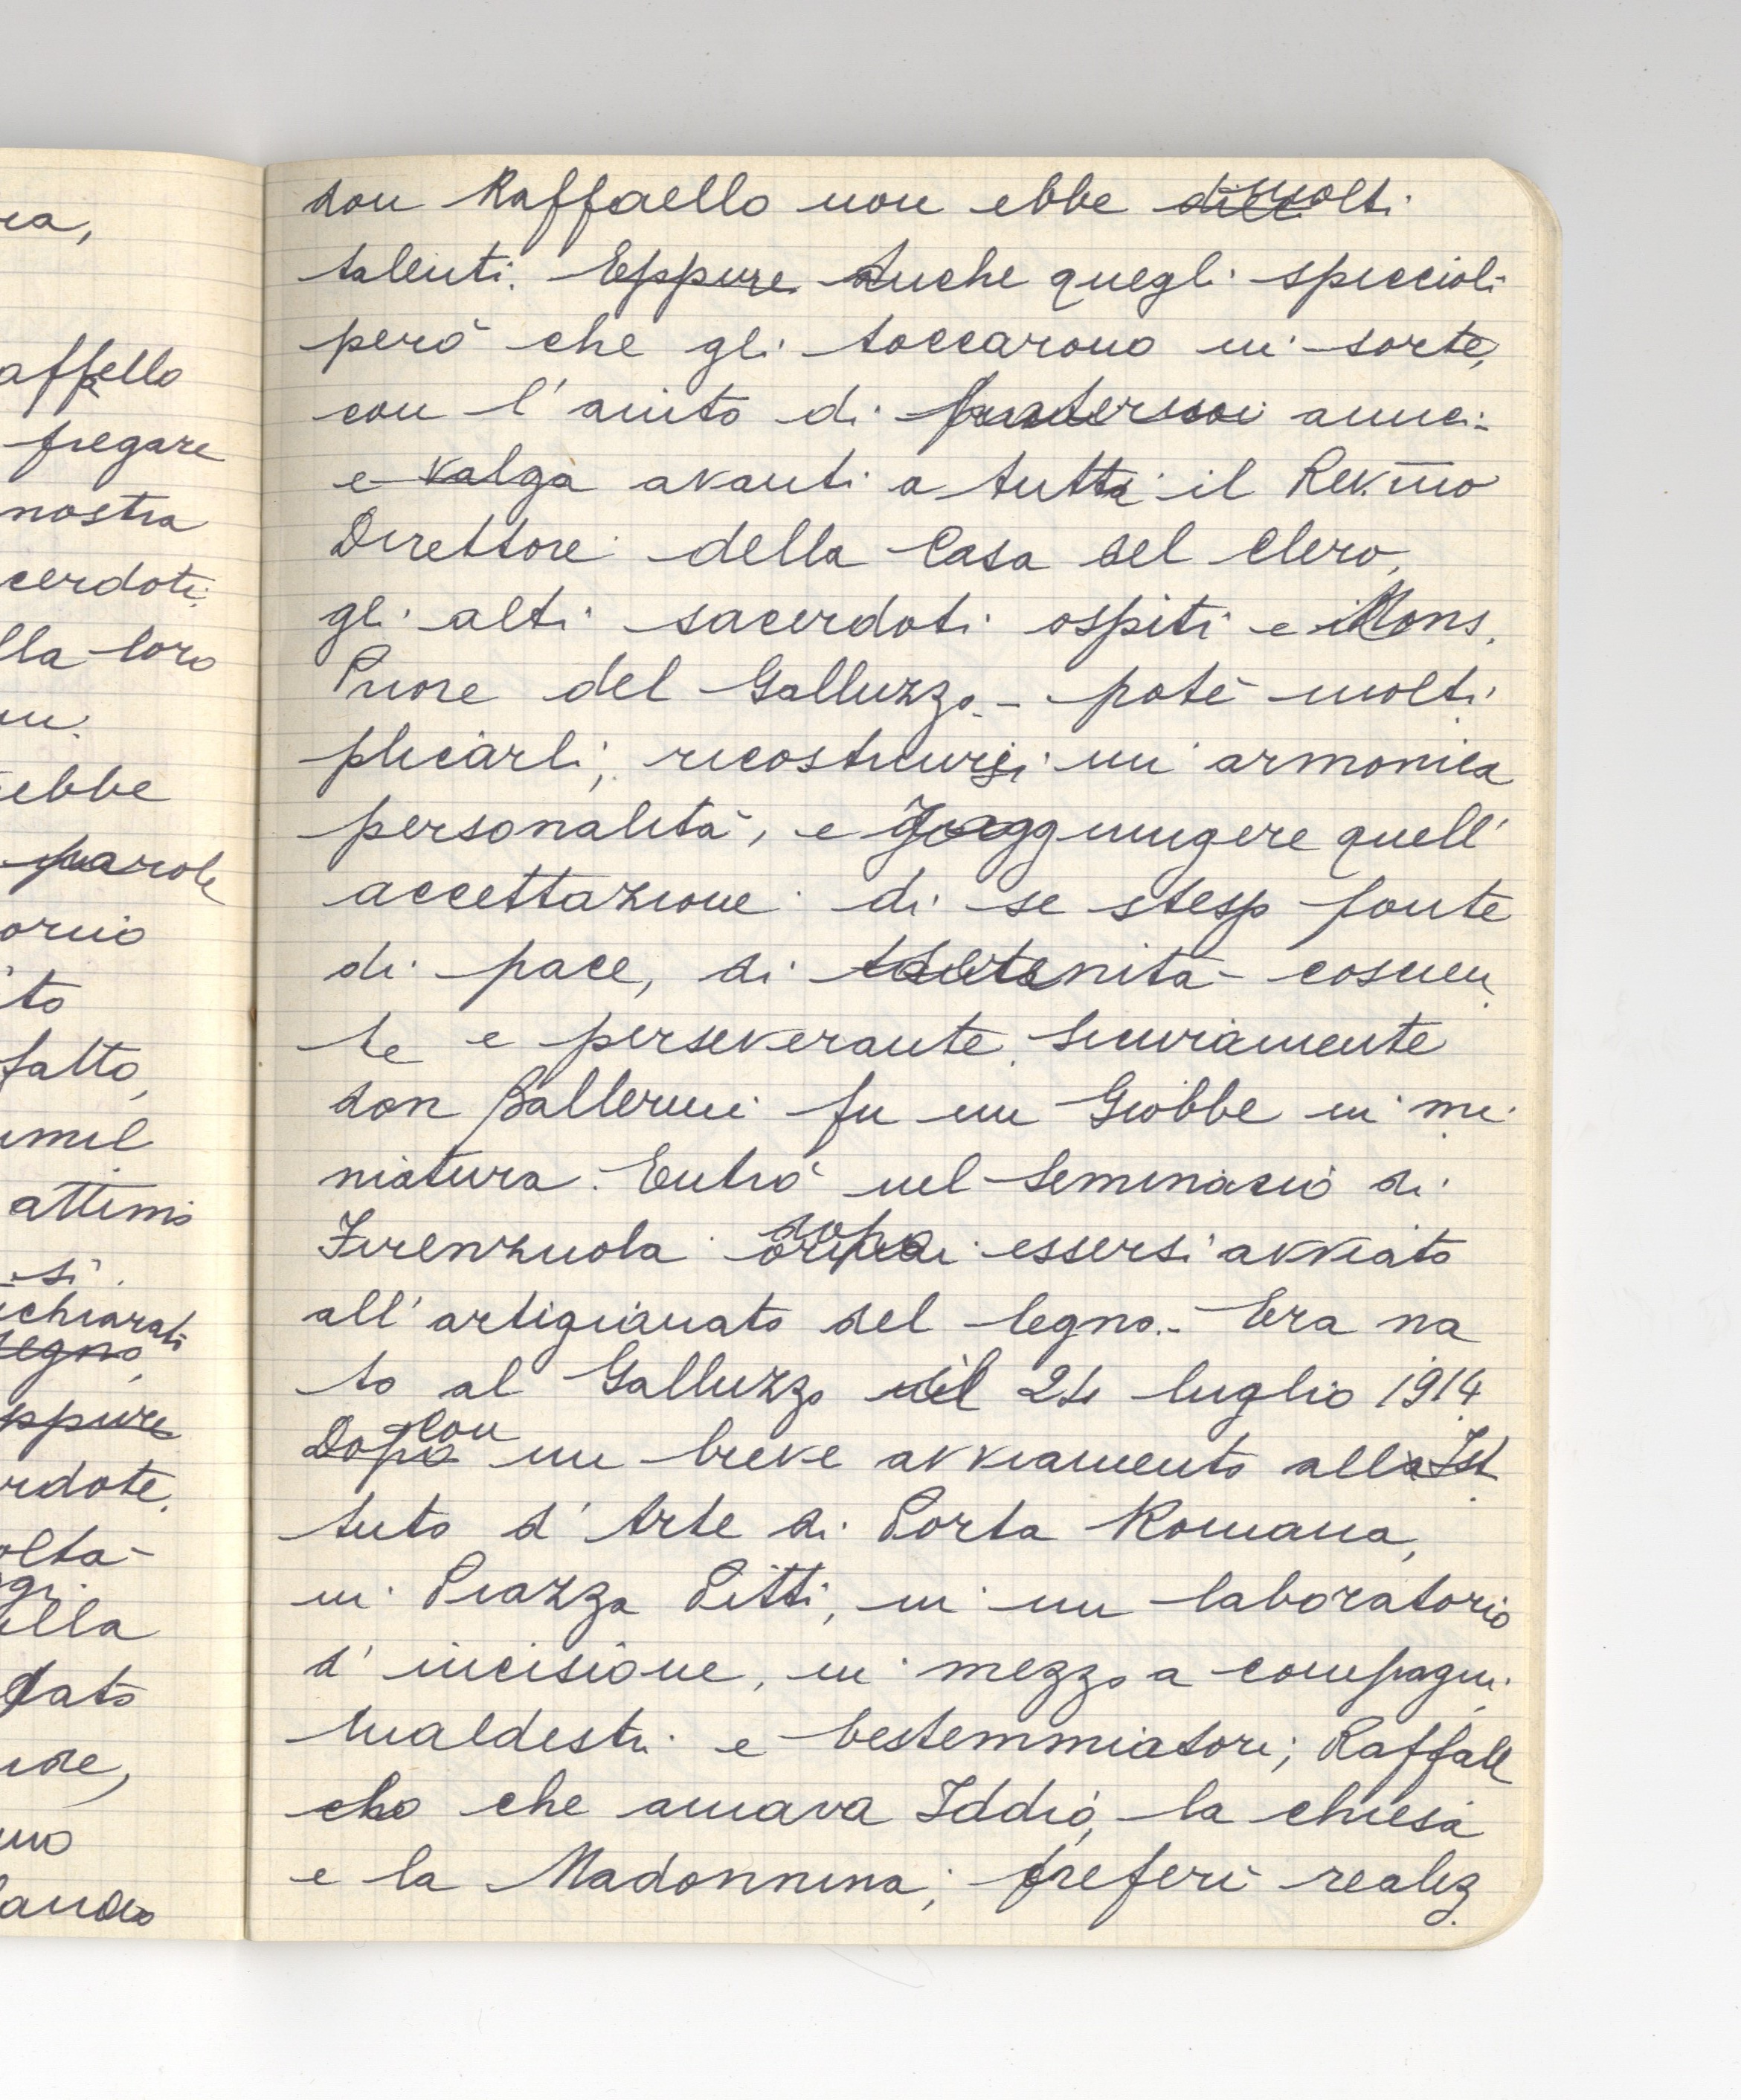 don Raffaello non ebbe molti
talenti. Eppure Anche quegli spiccioli
però che gli toccarono in sorte,
con l'aiuto di fraterni amici
e valga avanti a tutti il Rev.mo
Direttore della Casa del Clero,
gli alti sacerdoti ospiti e il Mons.
Priore del Galluzzo - poté molti
plicarli, ricostruirsi un'armonica
personalità, e raggiungere quell'
accettazione di se stesso fonte
di pace, di serenità coscien
te e perseverante. Sicuramente
don Ballerini fu un Giobbe in mi
niatura. Entrò nel Seminario di
Firenzuola dopo essersi avviato
all'artigianato del legno. - Era na
to al Galluzzo il 24 luglio 1914
Dopo con un breve avviamento all'Isti
tuto d'Arte di Porta Romana,
in Piazza Pitti, in un laboratorio
d'incisione, in mezzo a compagni
maldestri e bestemmiatori; Raffael
lo che amava Iddio, la chiesa
e la Madonnina; preferì realiz
ra,
affaello
pregare
nostra
cerdoti.
lla loro
ebbe
parole
ornio
ito
fatto,
umil
attimo
si.
ichiarati
segno,
ppure
rdote.
olta-
illa
dato